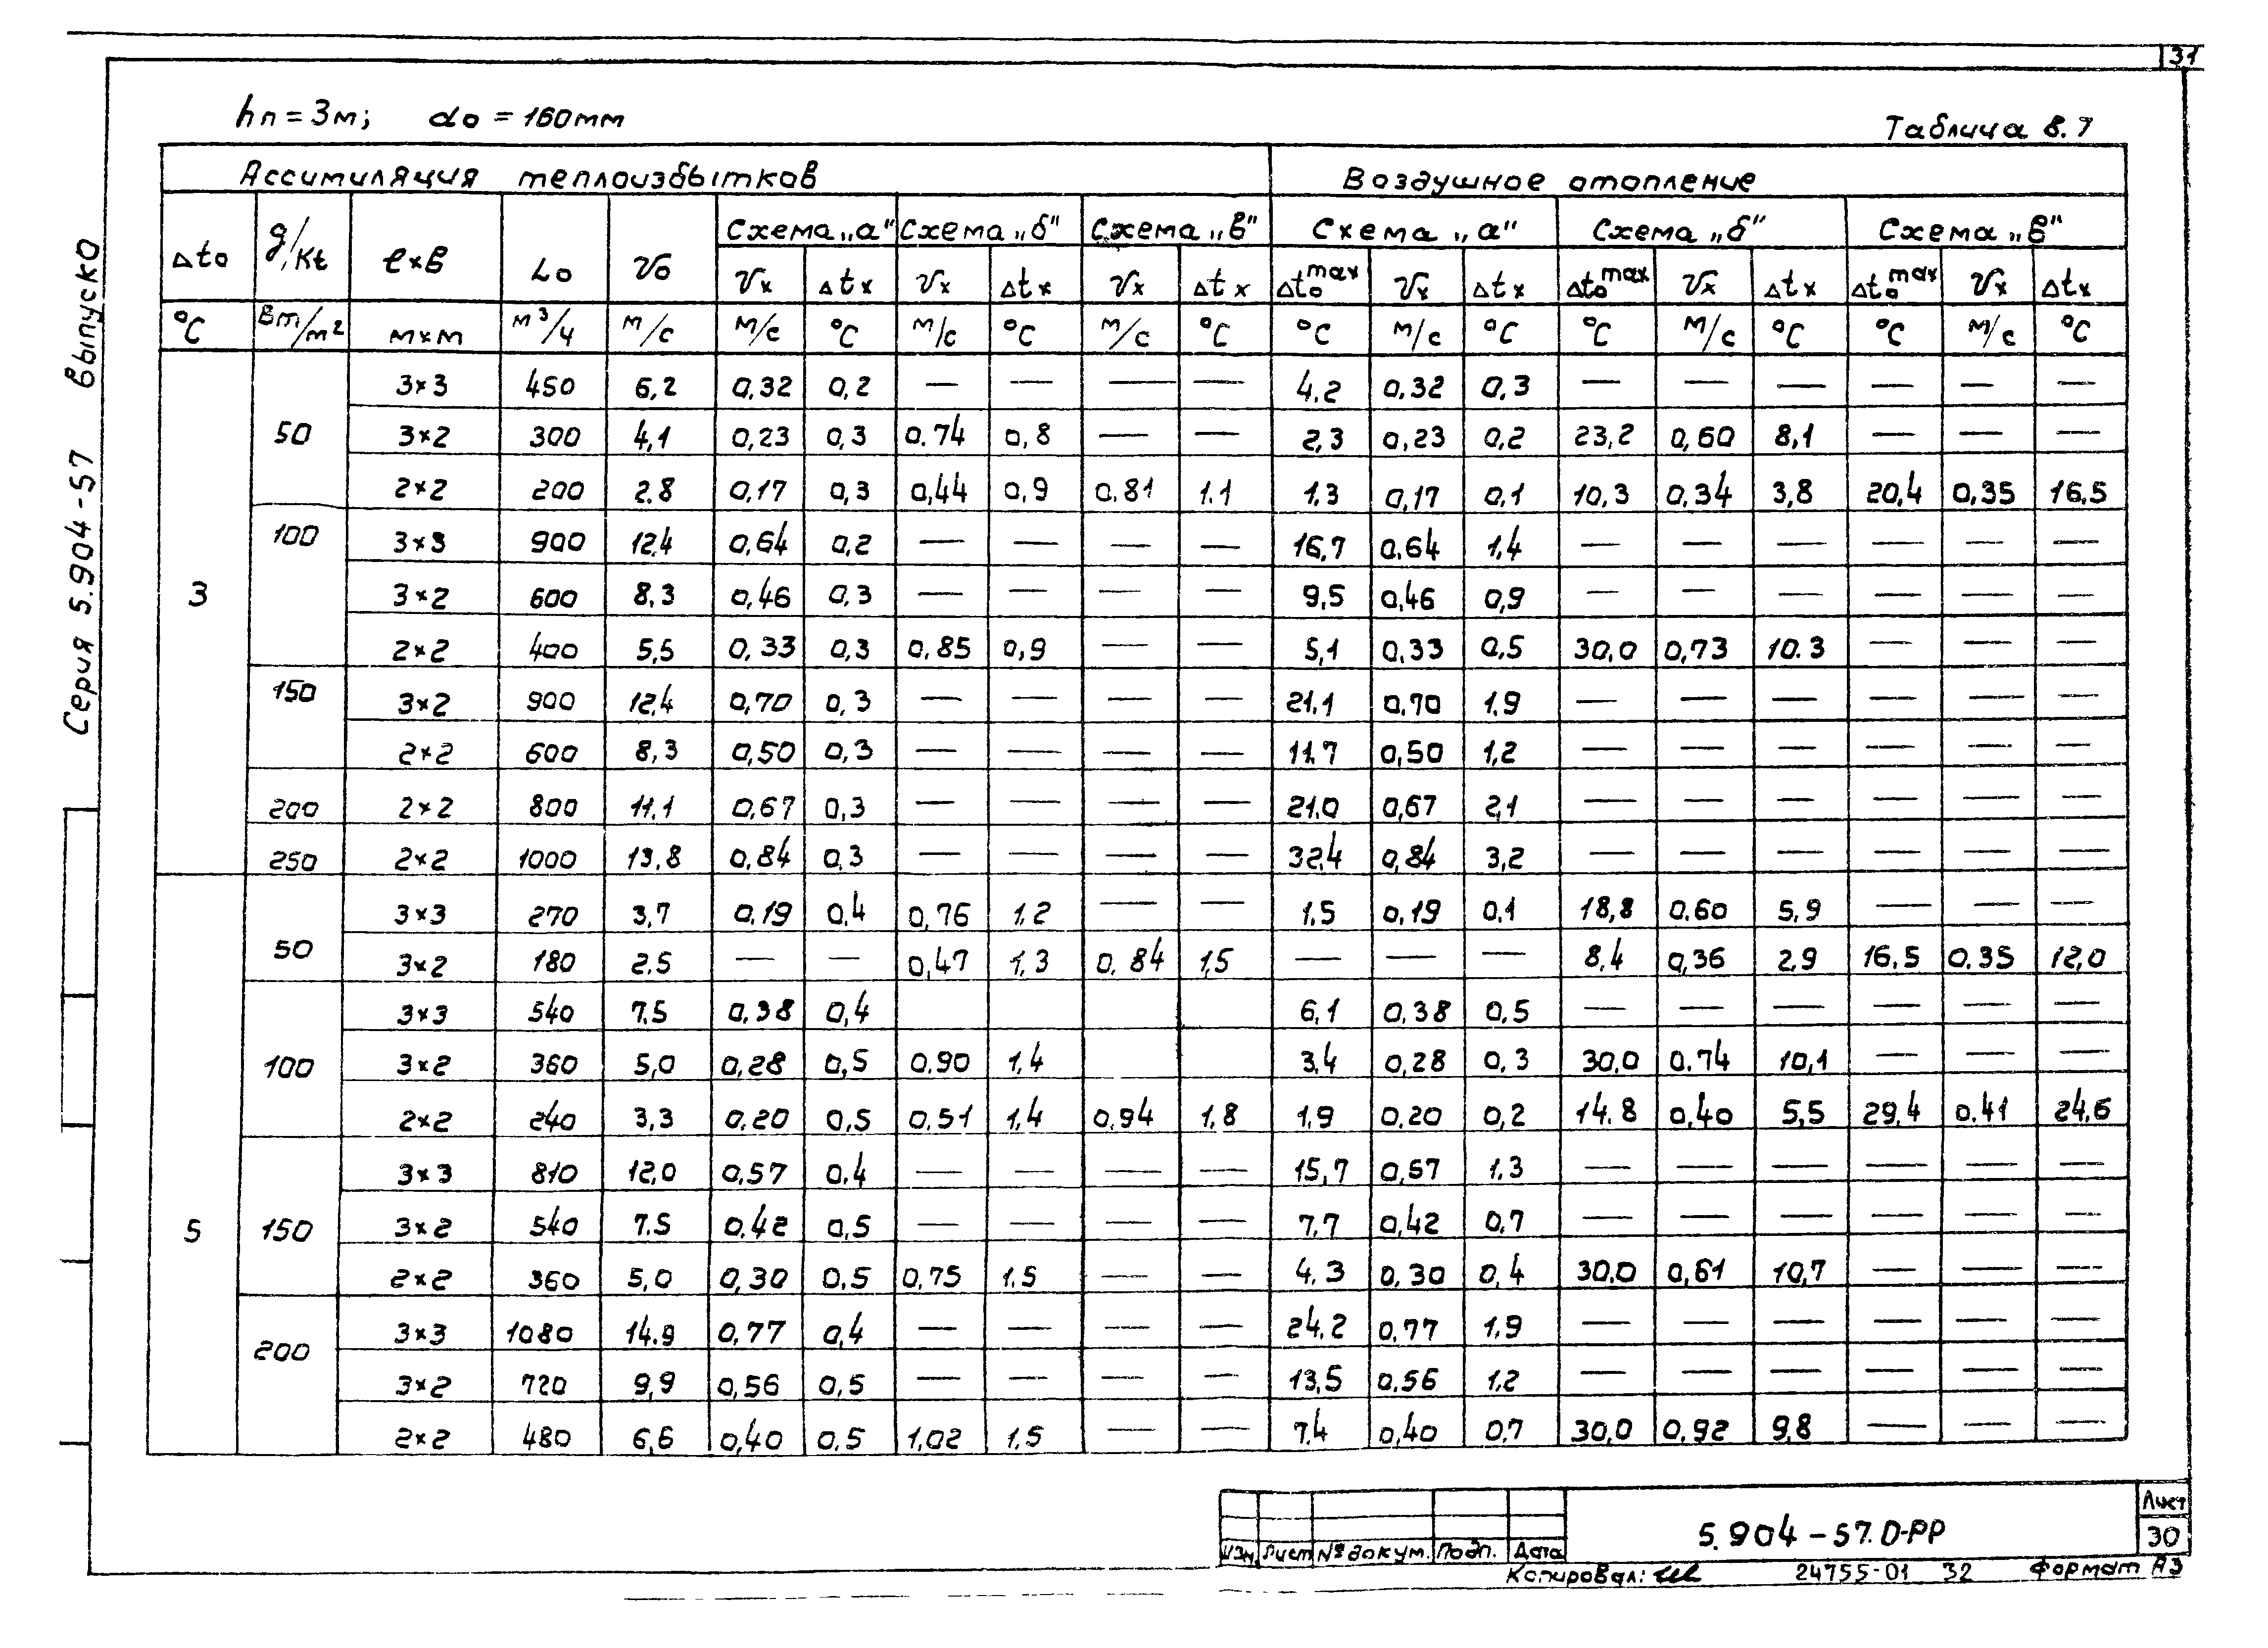 31
hп = 3м; do = 160мм
Таблица 8.7
Серия 5.904-57 Выпуск 0
Ассимиляция теплоизбытков Воздушное отопление
Δto g/Kt ℓ×в Lo Vo Схема „а" Схема „б" Схема „в" Схема „а" Схема „б" Схема „в"
Vx Δtx Vx Δtx Vx Δtx Δto max Vx Δtx Δto max Vx Δtx Δto max Vx Δtx
°C Вт/м² м×м м³/ч м/с м/с °C м/с °C м/с °C °C м/с °C °C м/с °C °C м/с °C
3 50 3×3 450 6,2 0,32 0,2 — — — — 4.2 0,32 0,3 — — — — — —
3×2 300 4,1 0,23 0,3 0.74 0,8 — — 2,3 0,23 0,2 23,2 0,60 8,1 — — —
2×2 200 2.8 0,17 0,3 0,44 0,9 0.81 1.1 1,3 0,17 0,1 10,3 0,34 3,8 20,4 0,35 16,5
100 3×3 900 12,4 0,64 0,2 — — — — 16,7 0.64 1,4 — — — — — —
3×2 600 8,3 0,46 0,3 — — — — 9,5 0,46 0,9 — — — — — —
2×2 400 5,5 0,33 0,3 0,85 0,9 — — 5,1 0.33 0,5 30,0 0,73 10.3 — — —
150 3×2 900 12,4 0,70 0,3 — — — — 21.1 0,70 1,9 — — — — — —
2×2 600 8,3 0,50 0,3 — — — — 11.7 0,50 1,2 — — — — — —
200 2×2 800 11.1 0,67 0,3 — — — — 21.0 0,67 2,1 — — — — — —
250 2×2 1000 13.8 0,84 0,3 — — — — 32,4 0,84 3,2 — — — — — —
5 50 3×3 270 3,7 0.19 0,4 0,76 1,2 — — 1,5 0,19 0,1 18,8 0.60 5,9 — — —
3×2 180 2.5 — — 0,47 1,3 0,84 1,5 — — — 8,4 0,36 2,9 16,5 0.35 12,0
100 3×3 540 7.5 0,38 0,4 6,1 0,38 0,5 — — — — — —
3×2 360 5,0 0,28 0,5 0.90 1,4 3,4 0,28 0,3 30,0 0.74 10,1 — — —
2×2 240 3,3 0.20 0,5 0.51 1,4 0,94 1,8 1,9 0.20 0,2 14.8 0,40 5,5 29,4 0.41 24,6
150 3×3 810 12,0 0,57 0.4 — — — — 15,7 0,57 1.3 — — — — — —
3×2 540 7.5 0.42 0,5 — — — — 7,7 0,42 0,7 — — — — — —
2×2 360 5,0 0,30 0,5 0,75 1.5 — — 4,3 0,30 0,4 30,0 0,61 10,7 — — —
200 3×3 1080 14.9 0,77 0,4 — — — — 24,2 0,77 1,9 — — — — — —
3×2 720 9,9 0,56 0,5 — — — — 13,5 0,56 1,2 — — — — — —
2×2 480 6,6 0,40 0,5 1,02 1,5 — — 7,4 0,40 0,7 30,0 0,92 9,8 — — —
Изм. Лист № докум. Подп. Дата
5.904-57.0-РР
Лист
30
Копировал: 24755-01 32 Формат А3